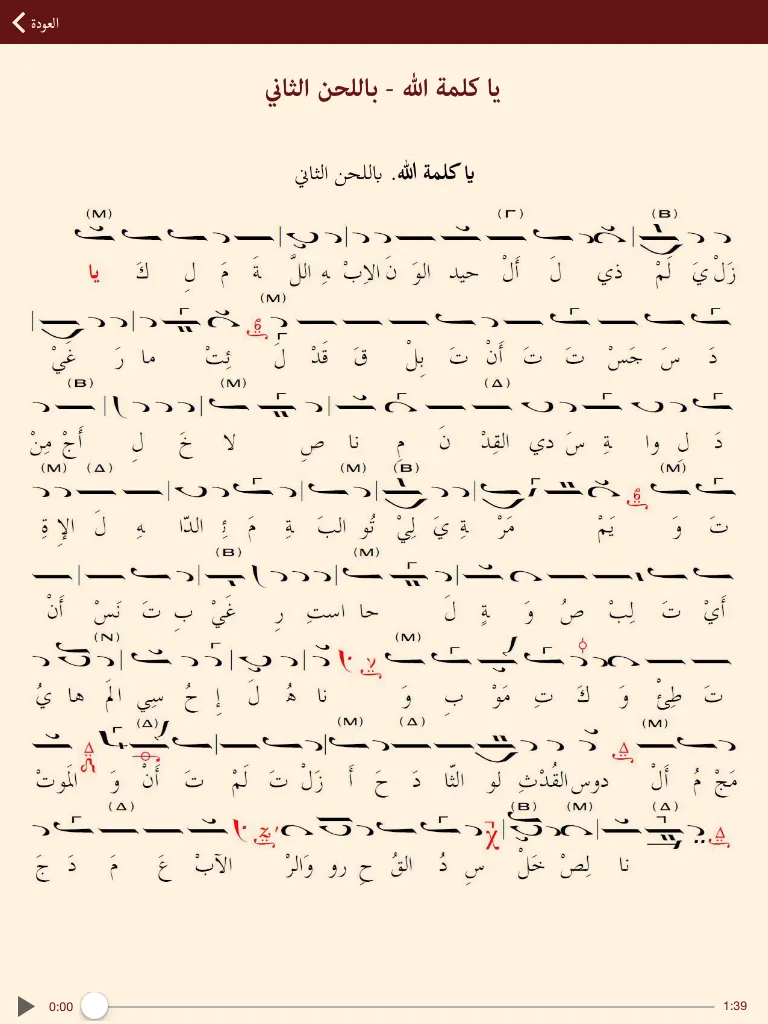 العودة
يا كلمة الله - باللحن الثاني
يا كلمة الله. باللحن الثاني
(M) (Γ) (B)
يا كَ لِ مَ ةَ اللَّ هِ الإبْ نَ الوَ حيد أَلْ لَ ذي لَمْ يَ زَلْ
(M)
غَيْ رَ ما ئِتْ لَ قَدْ قَ بِلْ تَ أَنْ تَ تَ جَسْ سَ دَ
(B) (M) (Δ)
مِنْ أَجْ لِ خَ لا صِ نا مِ نَ القِدْ دي سَ ةِ وا لِ دَ
(M) (Δ) (M) (B) (M)
ةِ الإِ لَ هِ الدّا ئِ مَ ةِ البَ تُو لِيْ يَ ةِ مَرْ يَمْ وَ تَ
(B) (M)
أَنْ نَسْ تَ بِ غَيْ رِ است حا لَ ةٍ وَ صُ لِبْ تَ أَيْ
(N) (M)
يُ ها المَ سِي حُ إِ لَ هُ نا وَ بِ مَوْ تِ كَ وَ طِئْ تَ
(Δ) (M) (Δ) (M)
المَوتْ وَ أَنْ تَ لَمْ تَ زَلْ أَ حَ دَ الثّا لو ثِ القُدْ دوس أَلْ مُ مَجْ
(Δ) (B) (M) (Δ)
جَ دَ مَ عَ الآبْ وَالرْ رو حِ القُ دُ سِ خَلْ لِصْ نا
0:00 1:39